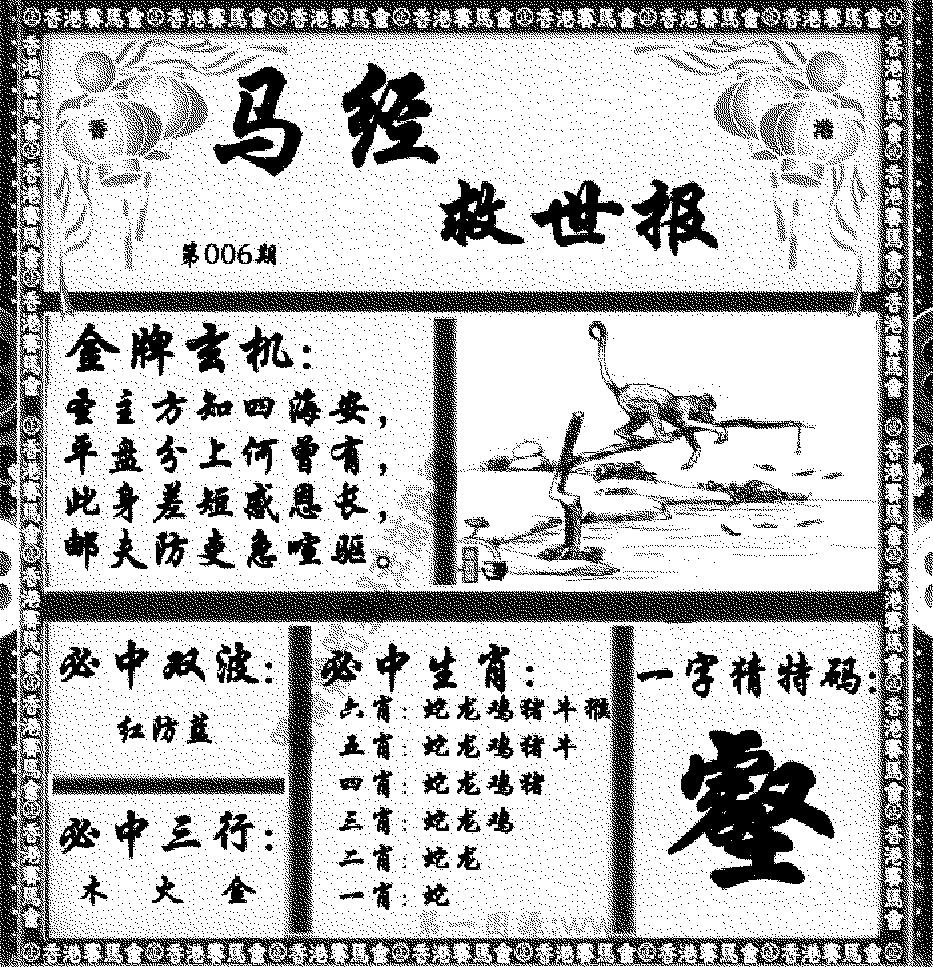 香港賽馬會香港賽馬會香港賽馬會香港賽馬會香港賽馬會香港賽馬會香港賽馬會
香
港
马经
救世报
第006期
金牌玄机:
圣主方知四海安,
平盘分上何曾有,
此身差短感恩长,
邮夫防吏急喧驱。
必中双波:
红防蓝
必中三行:
木 火 金
必中生肖:
六肖:蛇龙鸡猪牛猴
五肖:蛇龙鸡猪牛
四肖:蛇龙鸡猪
三肖:蛇龙鸡
二肖:蛇龙
一肖:蛇
一字猜特码:
壑
香港賽馬會香港賽馬會香港賽馬會香港賽馬會香港賽馬會香港賽馬會香港賽馬會